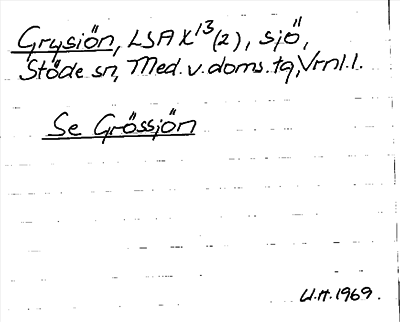 Grysjön, LSA X 13 (2), sjö,
Stöde sn, Med. v. doms. tg, Vrnl. l.
Se Grössjön
U.H. 1969.